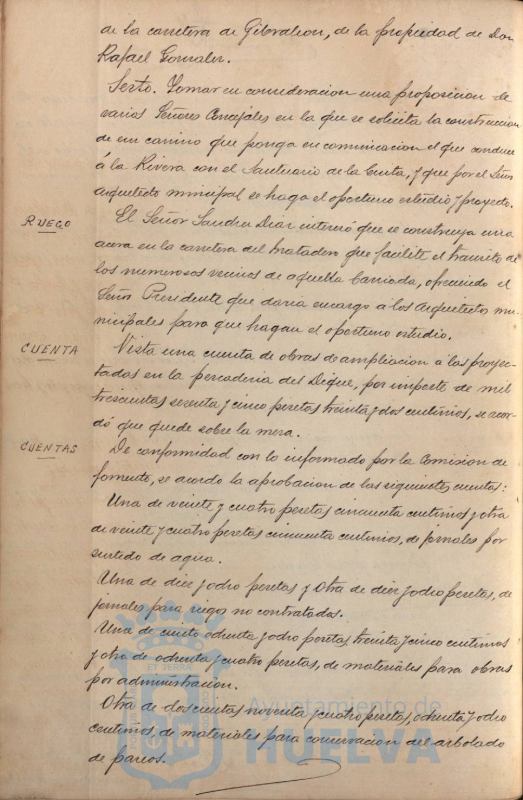 de la carretera de Gibraleon, de la propiedad de Don
Rafael Gonzalez.
Sexto. Tomar en consideracion una proposicion de
varios Señores Concejales en la que se solicita la construccion
de un camino que ponga en comunicacion el que conduce
á la Rivera con el Santuario de la Cinta, y que por el Señor
Arquitecto municipal se haga el oportuno estudio y proyecto.
RUEGO
El Señor Sanchez Diaz interesó que se construya una
acera en la carretera del Matadero que facilite el transito de
los numerosos vecinos de aquella barriada, ofreciendo el
Señor Presidente que daria encargo a los Arquitectos mu-
nicipales para que hagan el oportuno estudio.
CUENTA
Vista una cuenta de obras de ampliacion a las proyec-
tadas en la pescaderia del Dique, por importe de mil
trescientas sesenta y cinco pesetas treinta y dos centimos, se acor-
dó que quede sobre la mesa.
CUENTAS
De conformidad con lo informado por la Comision de
fomento, se acordo la aprobacion de las siguientes cuentas:
Una de veinte y cuatro pesetas cincuenta centimos y otra
de veinte y cuatro pesetas cincuenta centimos, de jornales por
surtido de agua.
Una de diez y ocho pesetas y otra de diez y ocho pesetas, de
jornales para riegos no contratados.
Una de ciento ochenta y ocho pesetas, treinta y cinco centimos
y otra de ochenta y cuatro pesetas, de materiales para obras
por administracion.
Otra de doscientas noventa y cuatro pesetas, ochenta y ocho
centimos, de materiales para conservacion del arbolado
de paseos.
Ayuntamiento de
HUELVA
ET TERRA